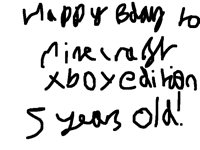 Happy Bday to
Minecraft
xboxedition
5 years old!